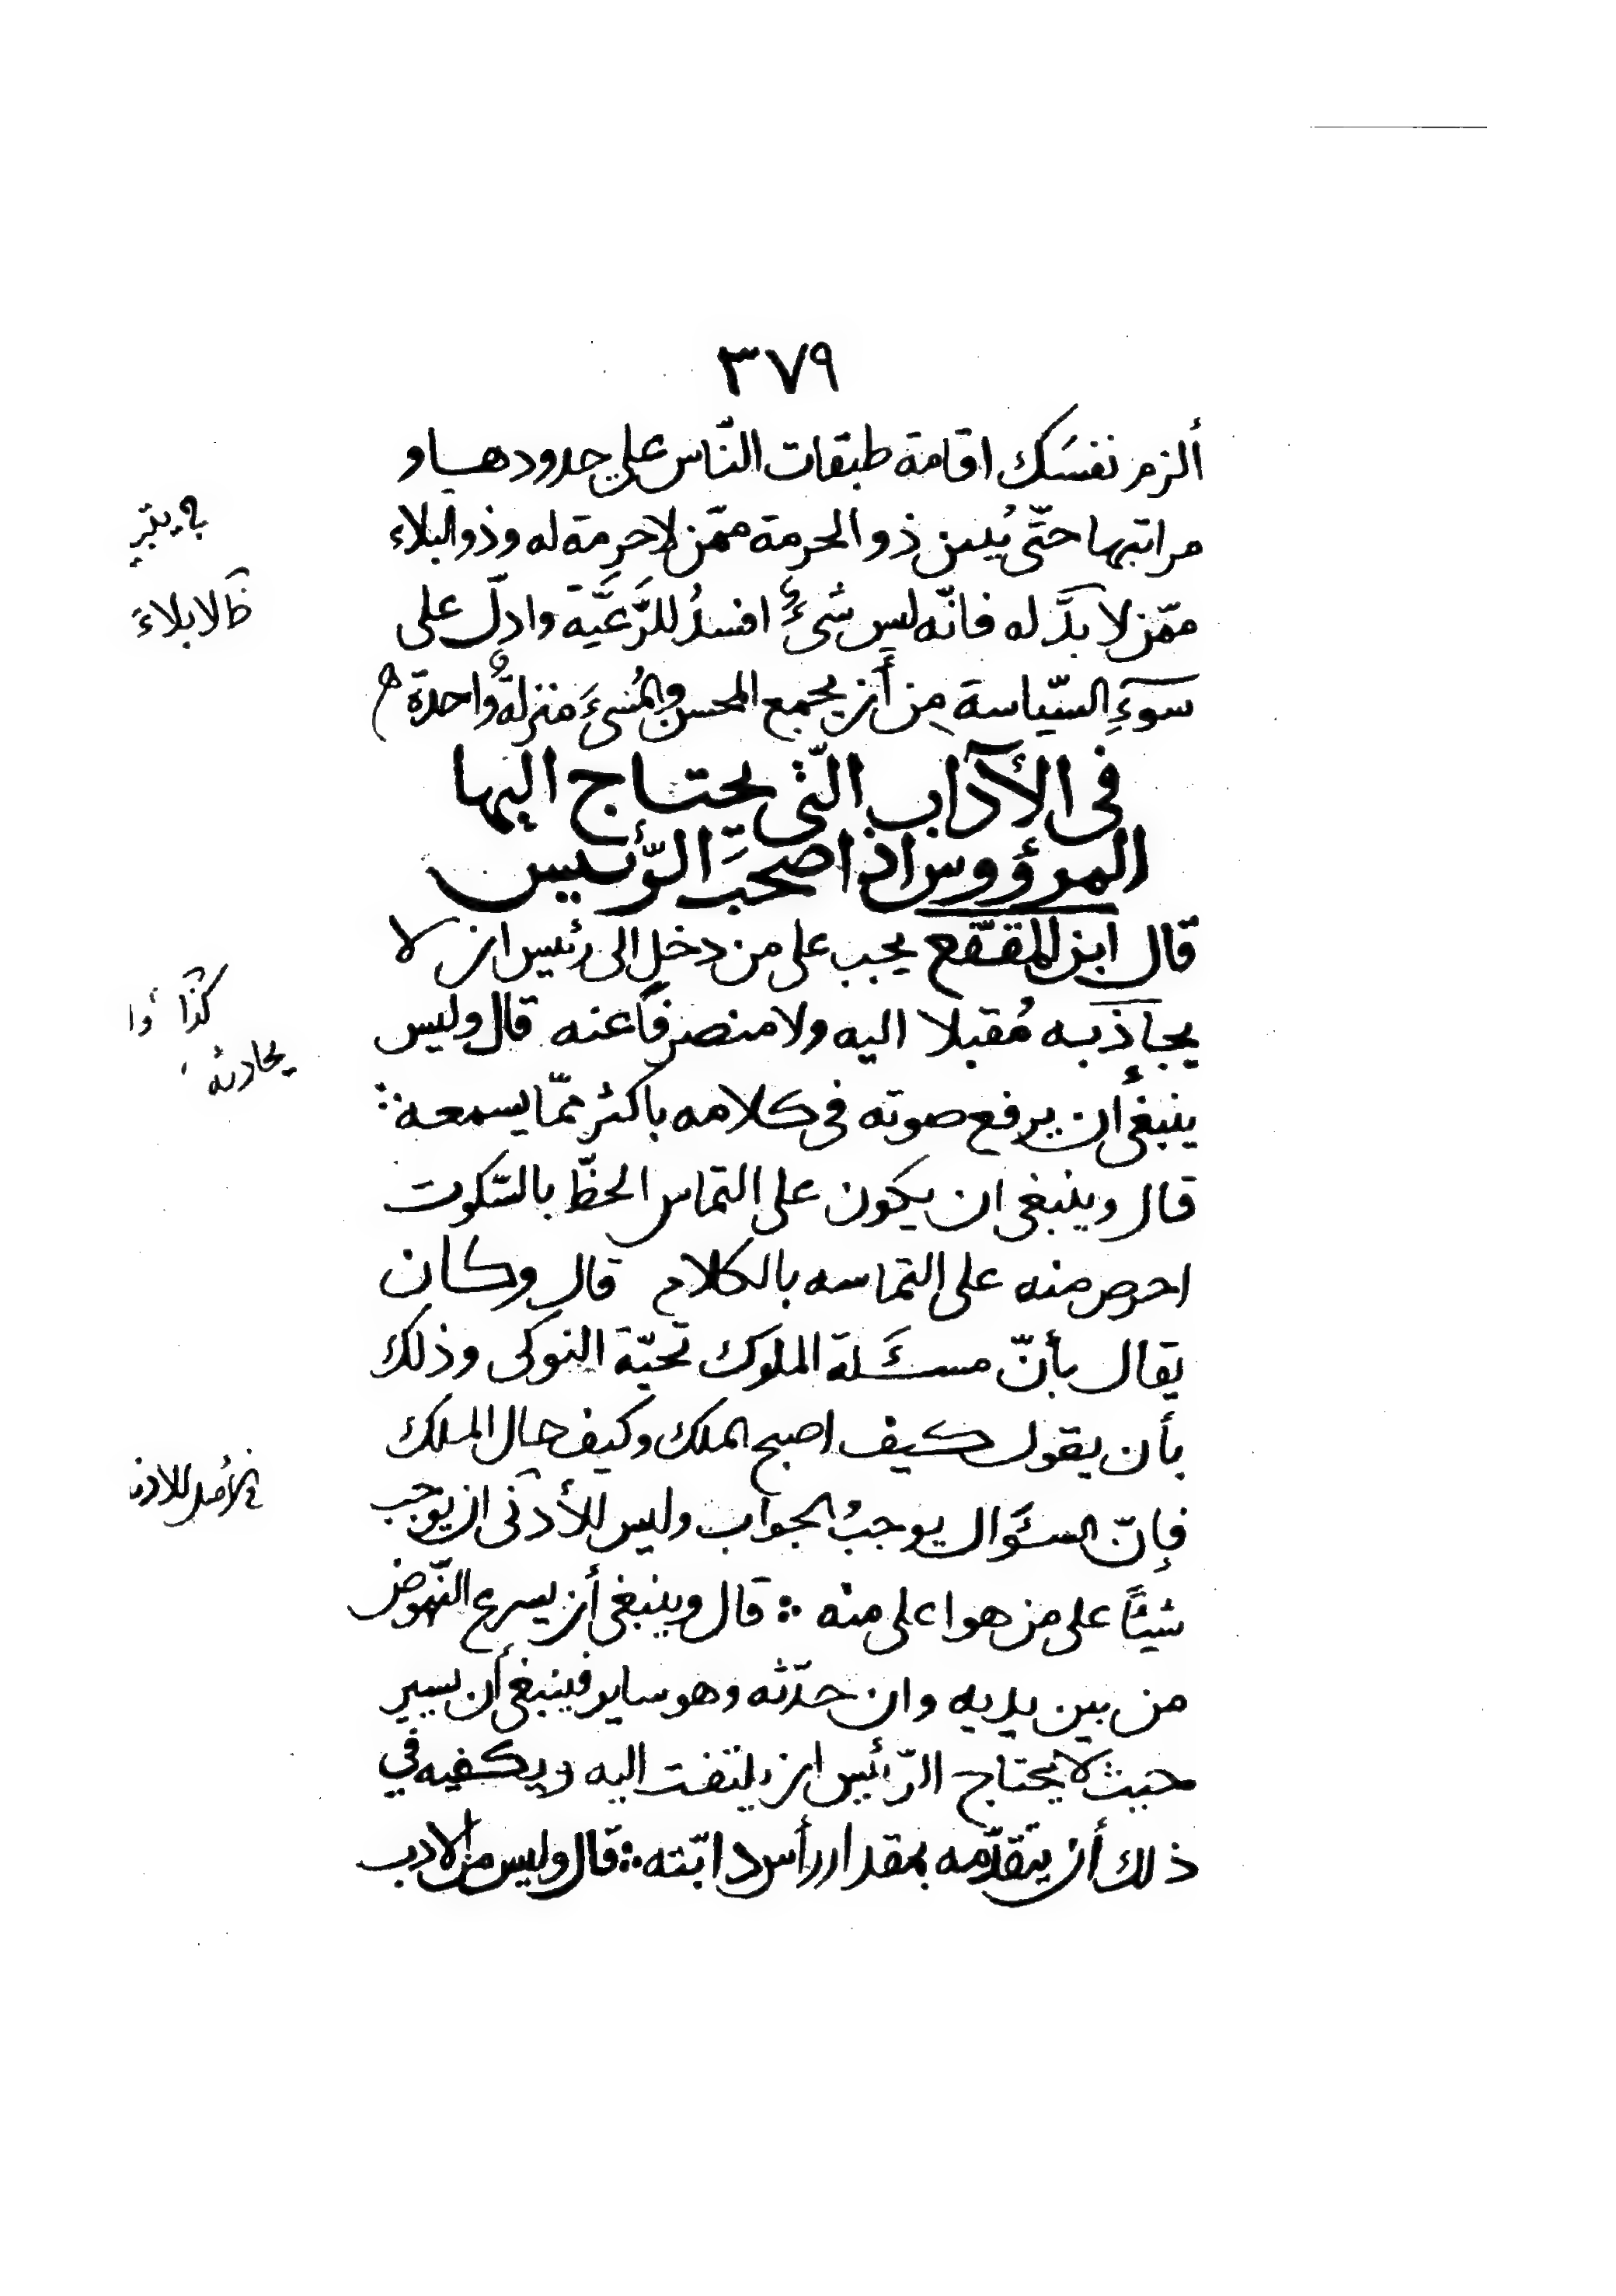 ٣٧٩
ألزم نفسَك اقامة طبقات النّاس على حدودها و
مراتبها حتّى يُبين ذو الحرمة ممّن لا حرمة له وذو البلاء
ممّن لا بدَّ له فانّه ليس شىءٌ افسدُ للرَّعَيَّة وادلّ على
سوءِ السّياسة من أَن يجمع المحسن والمُسىءَ منزلةٌ واحدة
فى الآداب الّتى يحتاج اليها
المرؤوس اذا صحبَ الرّئيس
قال ابن المقفّع يجب على من دخل الى رئيس ان لا
يجاذبه مُقبلا اليه ولا منصرفاً عنه قال وليس
ينبغى أن يرفع صوته فى كلامه باكثر ممّا يسمعه
قال وينبغى ان يكون على التماس الحظّ بالسّكوت
احرص منه على التماسه بالكلام قال وكان
يقال بأنّ مسئَلة الملوك تحيّة النوكى وذلك
بأن يقول كيف اصبح الملك وكيف حال الملك
فإنّ السئَوال يوجبُ الجواب وليس للأدنى ان يوجب
شيئًا على من هو اعلى منه قال وينبغى أن يسرع النّهوض
من بين يديه وان حدّثه وهو ساير فينبغى أن يسير
حيث لا يحتاج الرّئيس ان يلتفت اليه ويكفيه في
ذلك أن يتقدّمه بمقدار رأس دابّته قال وليس من الادب
ظ لا بلاءَ
كذا
يحادثه